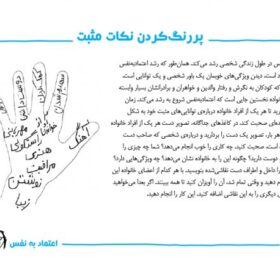 پررنگ‌کردن نکات مثبت
س در طول زندگی شخصی رشد می‌کند. همان‌طور که رشد اعتمادبه‌نفس
است، دیدن ویژگی‌های خوبمان یک باور شخصی و یک توانایی است.
که کودکان به نگرش و رفتار والدین و خواهران و برادرانشان بسیار وابسته
نواده نخستین جایی است که اعتمادبه‌نفس شروع به رشد می‌کند. زمان
تا هر یک از افراد خانواده درباره‌ی توانایی‌های مثبت خود به شکل
ده صحبت کند. در کاغذهای جداگانه، تصویر دست هر یک از افراد خانواده
هر بار، تصویر یک دست را بردارید و درباره‌ی شخصی که صاحب دست
است، صحبت کنید. چه کاری را خوب انجام می‌دهد؟ شما چه چیزی را
دوست دارید؟ چگونه این را به خانواده نشان می‌دهد؟ این ویژگی‌هایی را
را داخل و اطراف دست نقاشی‌شده بنویسید. با هر کدام از اعضای خانواده این
دهید و وقتی تمام شد، آن را آویزان کنید تا همه ببینند. اگر بعدا می‌خواهید
دیگری را به این نقاشی اضافه کنید، این کار را انجام دهید.
دوست‌داشتنی
مهربانی
هنری
مراقبت
زیبا
اعتماد به نفس